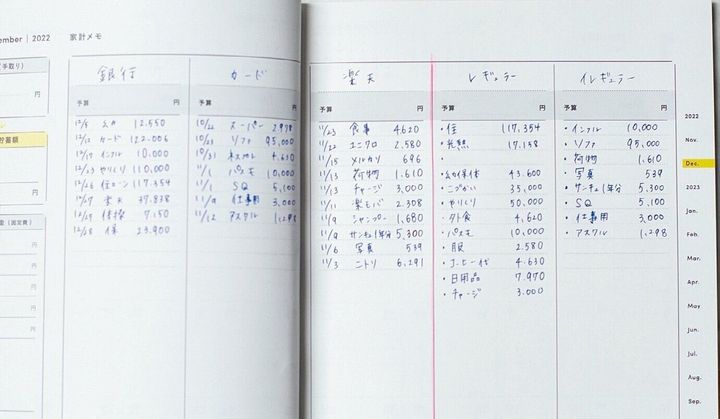 ember | 2022 家計メモ
(手取り)
円
貯蓄額
円
(固定費)
円
銀行
予算 円
12/5 12,550
12/12 カード 122,006
12/19 インフル 10,000
12/23 やりくり 110,000
12/26 住ローン 117,354
12/27 楽天 37,838
12/29 保険 7,150
12/28 保 23,900
カード
予算 円
10/22 スーパー 2,998
10/23 ソファ 95,000
10/31 ネスカフェ 4,630
11/1 パスモ 10,000
11/1 SQ 5,100
11/9 仕事用 3,000
11/12 アスクル 1,298
楽天
予算 円
11/23 食事 4,620
11/22 ユニクロ 2,580
11/15 メルカリ 696
11/13 荷物 1,610
11/13 チャージ 3,000
11/11 楽モバ 2,308
11/9 シャンプー 1,680
11/9 サンキュ!年分 5,300
11/6 写真 539
11/3 ニトリ 6,291
レギュラー
予算 円
・住 117,354
・光熱 17,158
・
43,600
・こづかい 35,000
・やりくり 50,000
・外食 4,620
・パスモ 10,000
・服 2,580
・コーヒー代 4,630
・日用品 7,970
・チャージ 3,000
イレギュラー
予算 円
・インフル 10,000
・ソファ 95,000
・荷物 1,610
・写真 539
・サンキュ!年分 5,300
・SQ 5,100
・仕事用 3,000
・アスクル 1,298
2022
Nov.
Dec.
2023
Jan.
Feb.
Mar.
Apr.
May
Jun.
Jul.
Aug.
Sep.